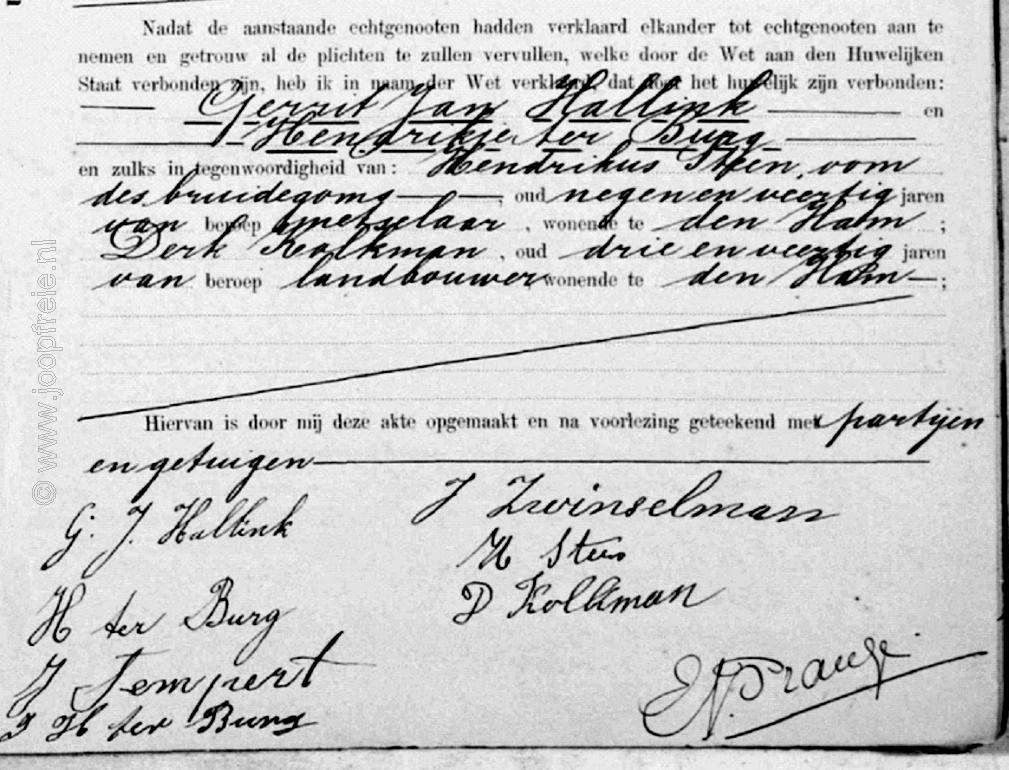 Nadat de aanstaande echtgenooten hadden verklaard elkander tot echtgenooten aan te
nemen en getrouw al de plichten te zullen vervullen, welke door de Wet aan den Huwelijken
Staat verbonden zijn, heb ik in naam der Wet verklaard, dat door het huwelijk zijn verbonden:
Gerrit Jan Hallink en
Hendrikje ter Burg
en zulks in tegenwoordigheid van: Hendrikus Steen, oom
des bruidegoms, oud negen en veertig jaren
van beroep metselaar, wonende te den Ham;
Derk Kolkman, oud drie en veertig jaren
van beroep landbouwer wonende te den Ham;
Hiervan is door mij deze akte opgemaakt en na voorlezing geteekend met partijen
en getuigen
G. J. Hallink
J Zwinselman
H Steen
H ter Burg
D Kolkman
J Tempert
J H ter Burg
© www.joopfreie.nl